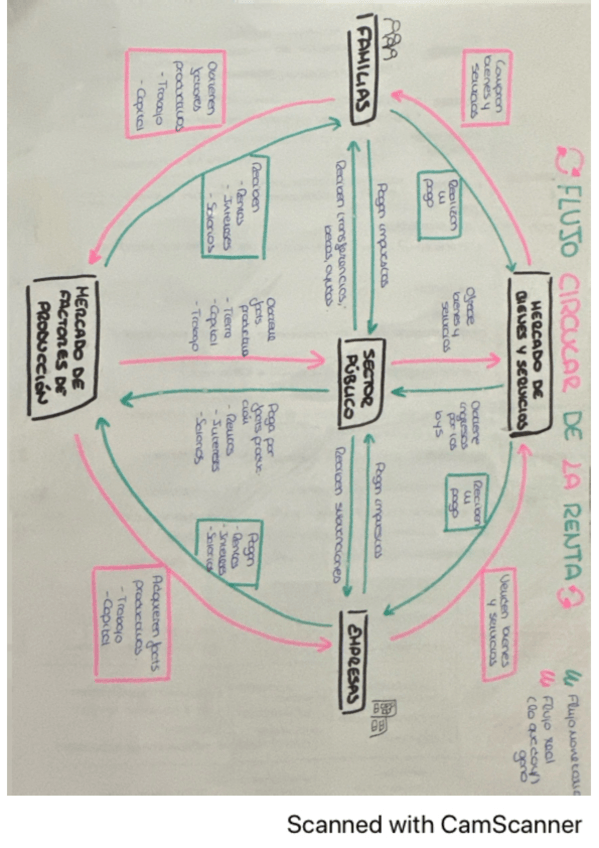 FLUJO CIRCULAR DE LA RENTA
Flujo monetario
Flujo real
(lo que doy n
gano
Compran
bienes y
servicios
MERCADO DE
BIENES Y SERVICIOS
Venden bienes
y servicios
Realizan
el
pago
Ofrece
bienes y
servicios
Obtiene
ingresos
por los
b y s
Reciben
el
pago
FAMILIAS
Pagan impuestos
Reciben transferencias,
becas, ayudas
SECTOR
PÚBLICO
Pagan impuestos
Reciben subvenciones
EMPRESAS
Reciben
- Rentas
- Intereses
- Salarios
Obtiene
facts
productivos
- Tierra
- Capital
- Trabajo
Paga por
facts produc-
ción
- Rentas
- Intereses
- Salarios
Pagan
- Rentas
- Intereses
- Salarios
factores
productivos
- Trabajo
- Capital
MERCADO DE
FACTORES DE
PRODUCCIÓN
Adquieren facts
productivos
- Trabajo
- Capital
Scanned with CamScanner